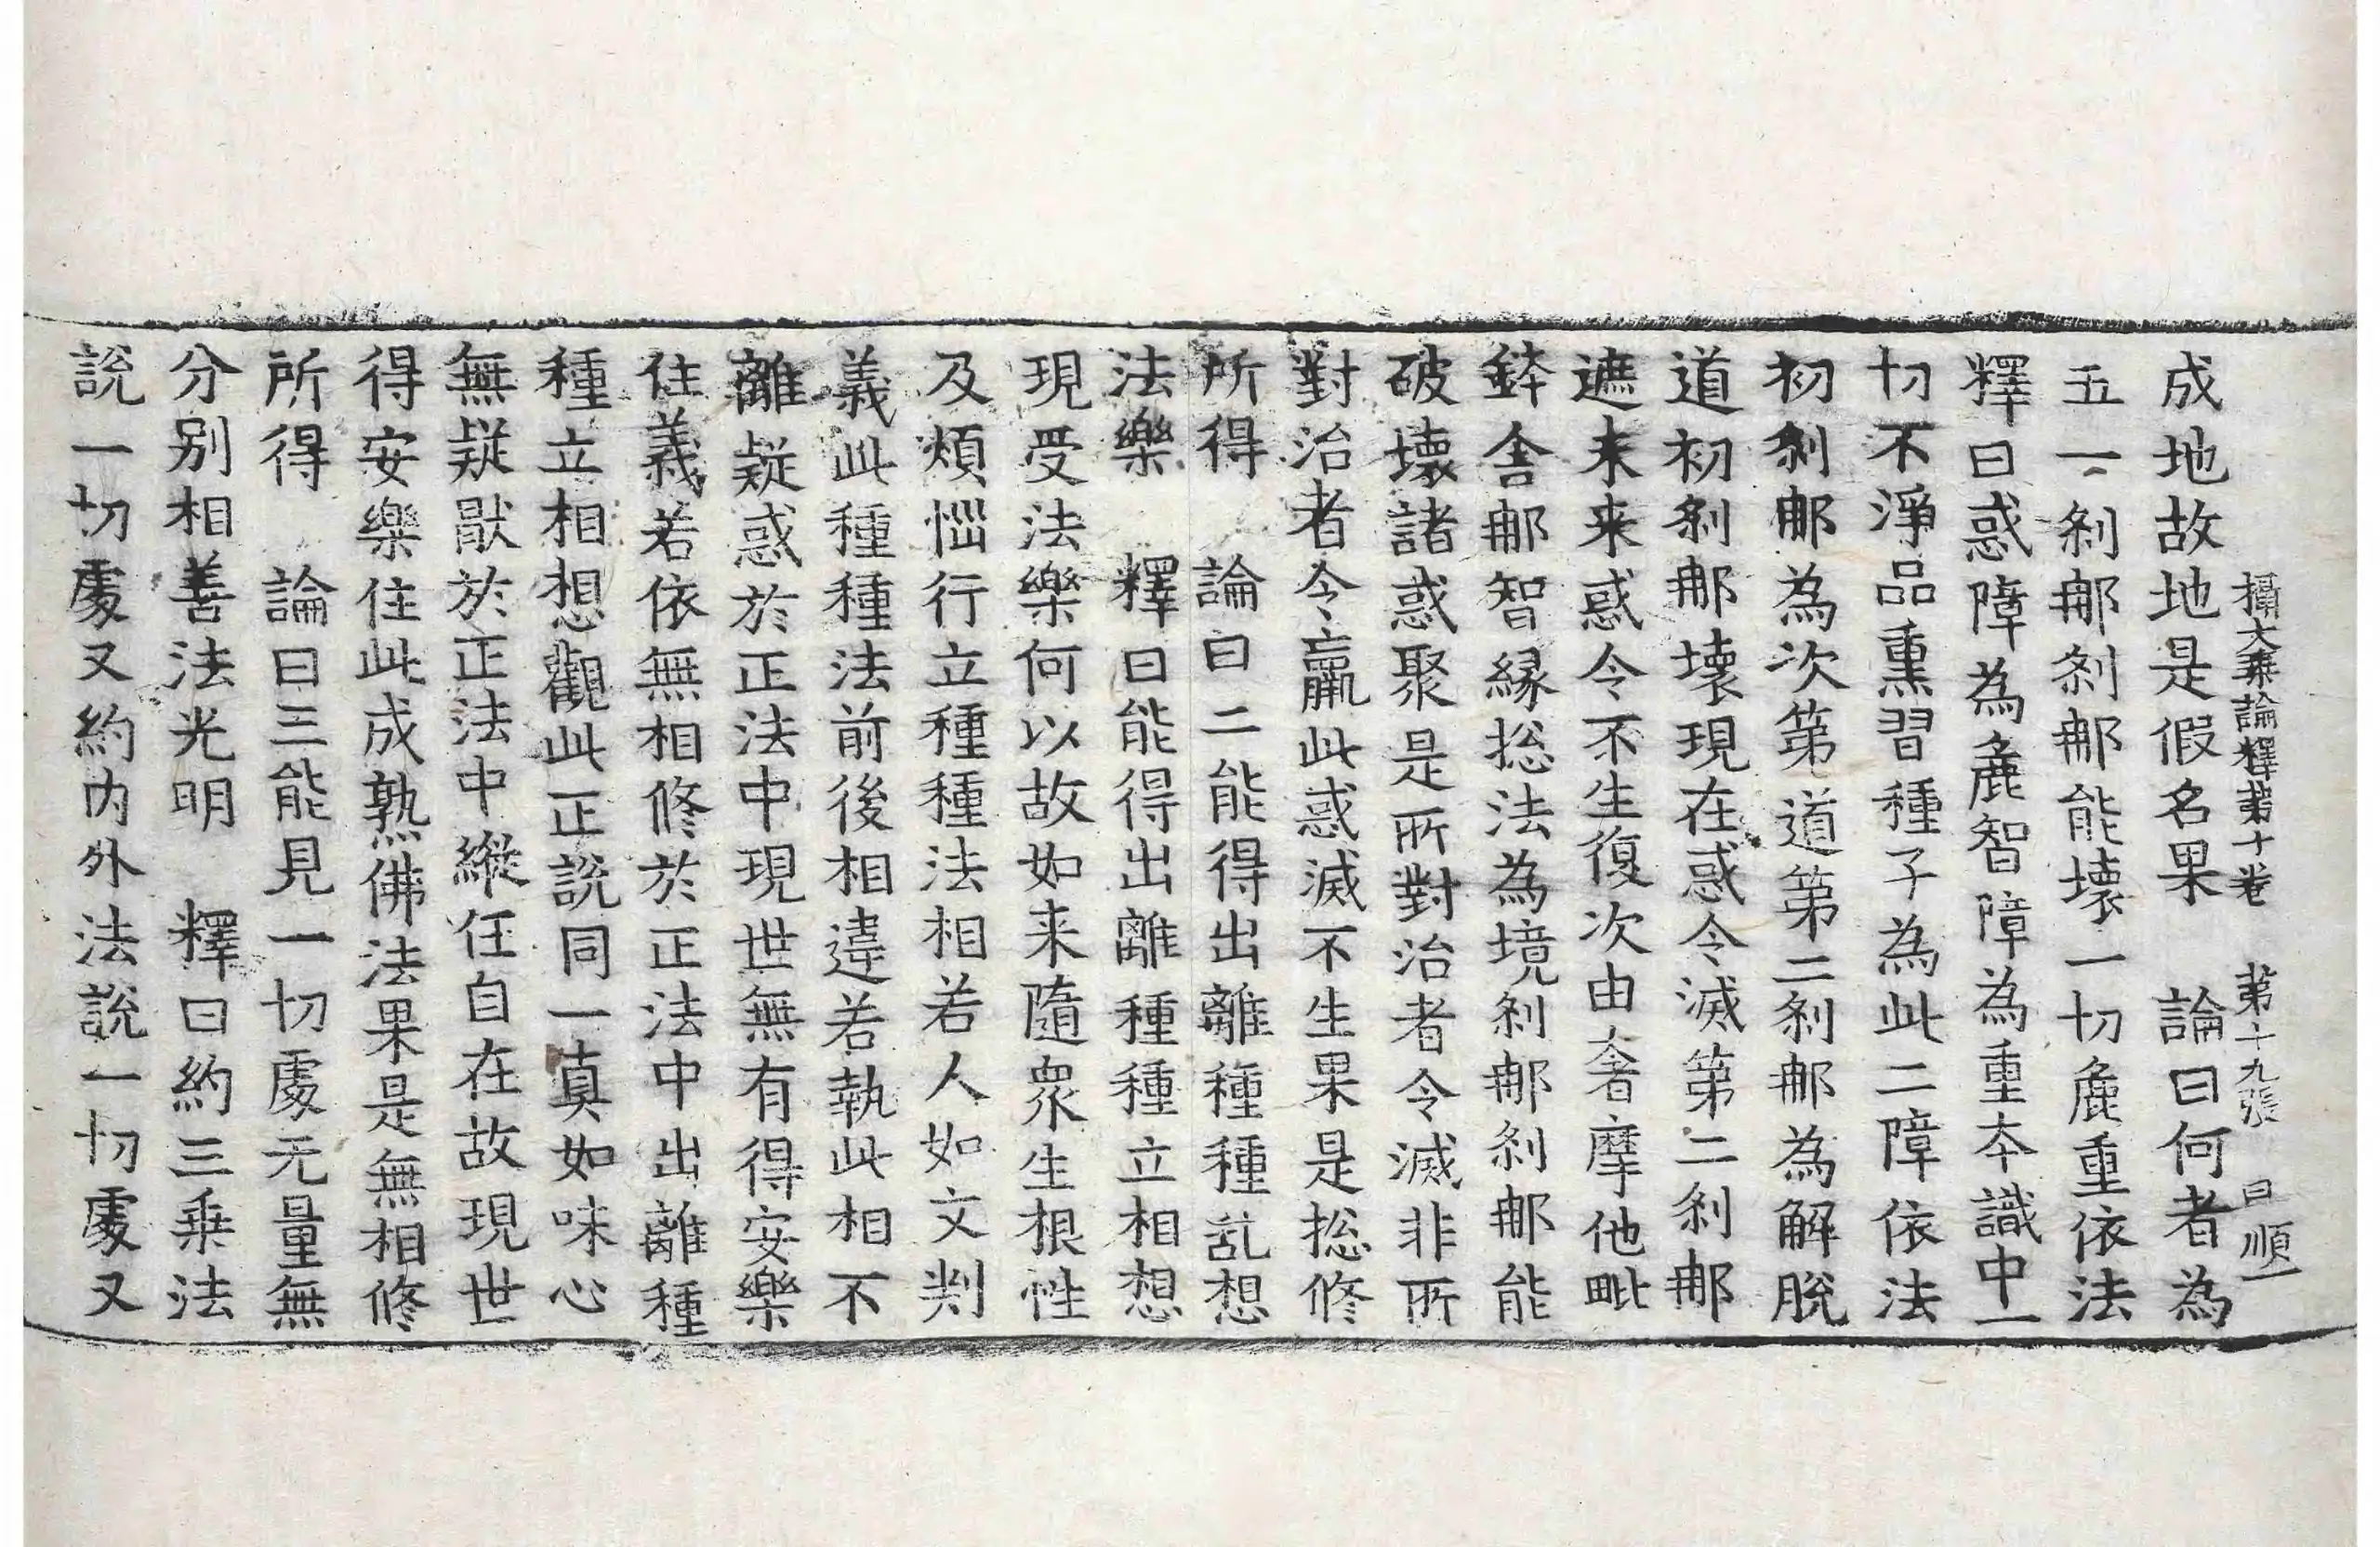 攝大乘論釋第十卷　第十九張　曰順一
成地故地是假名果　論曰何者為
五一剎那剎那能壞一切麁重依法
釋曰惑障為麁智障為重夲識中一
切不淨品熏習種子為此二障依法
初剎那為次第道第二剎那為解脫
道初剎那壞現在惑令滅第二剎那
遮未来惑令不生復次由奢摩他毗
鉢舍那智緣捴法為境剎那剎那能
破壞諸惑聚是所對治者令滅非所
對治者令羸此惑滅不生果是捴修
所得　論曰二能得出離種種乱想
法樂　釋曰能得出離種種立相想
現受法樂何以故如来隨眾生根性
及煩惱行立種種法相若人如文判
義此種種法前後相違若執此相不
離疑惑於正法中現世無有得安樂
住義若依無相修於正法中出離種
種立相想觀此正說同一真如味心
無疑猒於正法中縱任自在故現世
得安樂住此成熟佛法果是無相修
所得　論曰三能見一切處无量無
分別相善法光明　釋曰約三乗法
說一切處又約内外法說一切處又